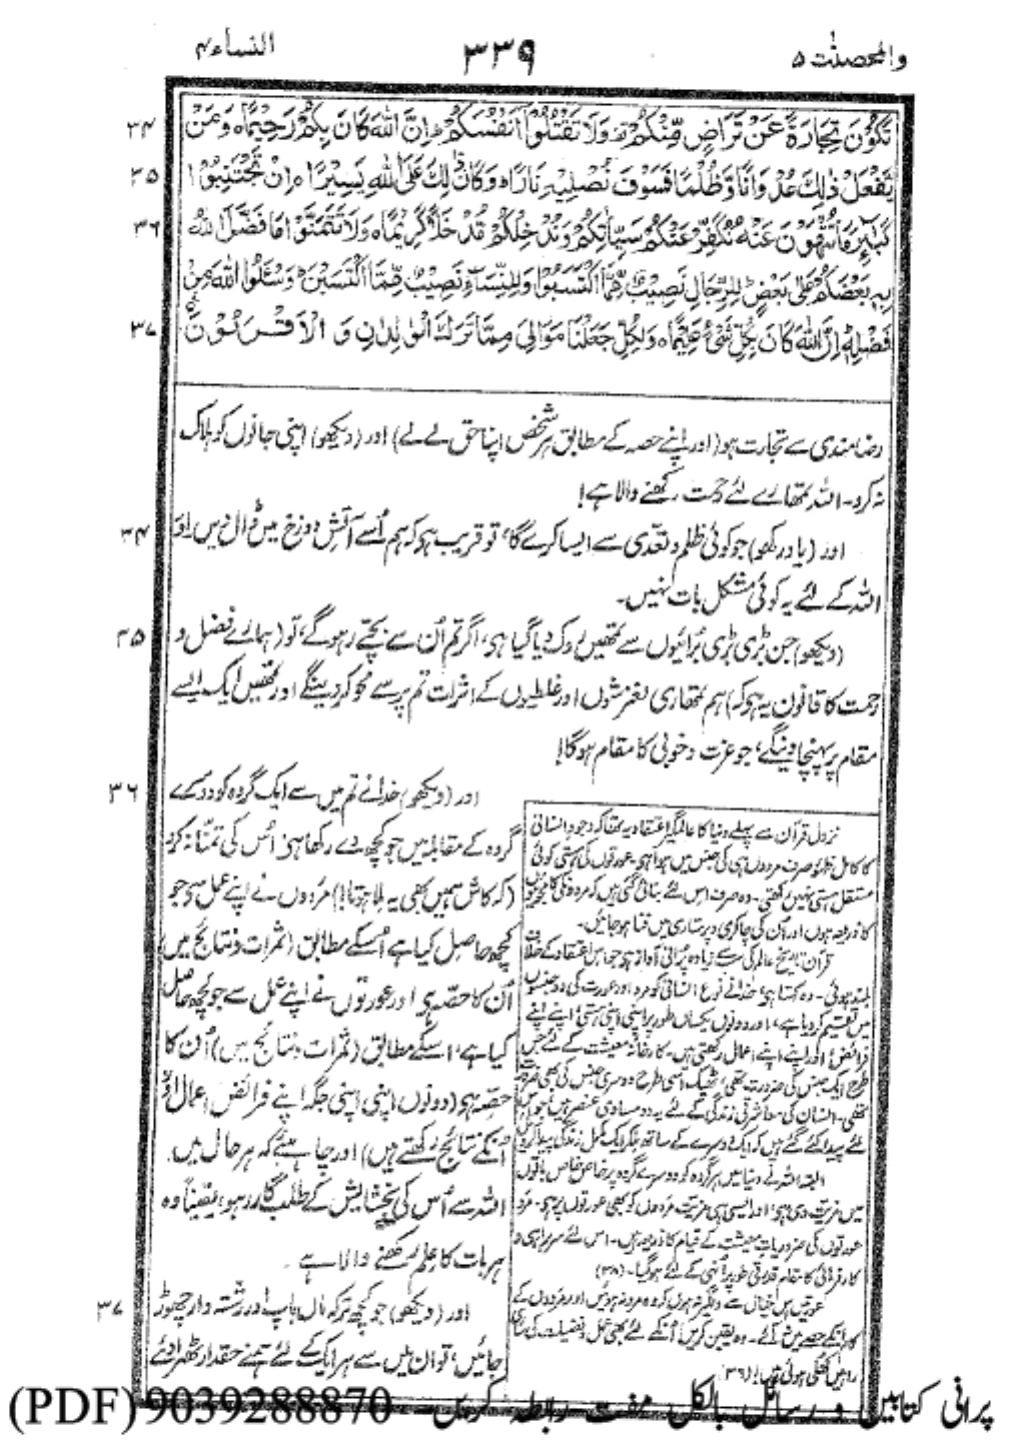 والمحصنٰت ۵
۳۳۹
النساء ۴
تَكُوْنَ تِجَارَةً عَنْ تَرَاضٍ مِّنْكُمْ وَلَا تَقْتُلُوْۤا اَنْفُسَكُمْ اِنَّ اللّٰهَ كَانَ بِكُمْ رَحِيْمًا ۰ وَمَنْ ۳۴
يَّفْعَلْ ذٰلِكَ عُدْوَانًا وَّظُلْمًا فَسَوْفَ نُصْلِيْهِ نَارًا ۰ وَكَانَ ذٰلِكَ عَلَى اللّٰهِ يَسِيْرًا ۰ اِنْ تَجْتَنِبُوْا ۳۵
كَبَآئِرَ مَا تُنْهَوْنَ عَنْهُ نُكَفِّرْ عَنْكُمْ سَيِّاٰتِكُمْ وَنُدْخِلْكُمْ مُّدْخَلًا كَرِيْمًا ۰ وَلَا تَتَمَنَّوْا مَا فَضَّلَ اللّٰهُ ۳۶
بِهٖ بَعْضَكُمْ عَلٰى بَعْضٍ لِلرِّجَالِ نَصِيْبٌ مِّمَّا اكْتَسَبُوْا وَلِلنِّسَآءِ نَصِيْبٌ مِّمَّا اكْتَسَبْنَ وَسْئَلُوا اللّٰهَ مِنْ
فَضْلِهٖ اِنَّ اللّٰهَ كَانَ بِكُلِّ شَيْءٍ عَلِيْمًا ۰ وَلِكُلٍّ جَعَلْنَا مَوَالِيَ مِمَّا تَرَكَ الْوَالِدٰنِ وَ الْاَقْرَبُوْنَ ۳۷
رضامندی سے تجارت ہو (اور اپنے حصہ کے مطابق ہر شخص اپنا حق لے لے) اور (دیکھو) اپنی جانوں کو ہلاک
نہ کرو۔ اللہ تمھارے لئے رحمت رکھنے والا ہے!
اور (یاد رکھو) جو کوئی ظلم و تعدّی سے ایسا کرے گا، تو قریب ہے کہ ہم اُسے آتشِ دوزخ میں ڈال دیں اور ۳۴
اللہ کے لئے یہ کوئی مشکل بات نہیں۔
(دیکھو) جن بڑی بڑی برائیوں سے تمھیں روک دیا گیا ہی، اگر تم اُن سے بچتے رہوگے، تو (ہمارے فضل و ۳۵
رحمت کا قانون یہ ہو کہ) ہم تمھاری لغزشوں اور غلطیوں کے اثرات تم پر سے محو کر دینگے اور تمھیں ایک ایسے
مقام پر پہنچا دینگے، جو عزت و خوبی کا مقام ہوگا!
اور (دیکھو) خدا نے تم میں سے ایک گروہ کو دوسرے ۳۶
گروہ کے مقابلہ میں جو کچھ دے رکھا ہی، اُس کی تمنّا نہ کرو
(کہ کاش ہمیں بھی یہ ملا ہوتا!) مَردوں نے اپنے عمل سے جو
کچھ حاصل کیا ہے اُسکے مطابق (ثمرات و نتائج میں)
اُن کا حصّہ ہی اور عورتوں نے اپنے عمل سے جو کچھ حاصل
کیا ہے، اُسکے مطابق (ثمرات و نتائج میں) اُن کا
حصّہ ہی (دونوں اپنی اپنی جگہ اپنے فرائض و اعمال اور
اُنکے نتائج رکھتے ہیں) اور چاہیئے کہ ہر حال میں
اللہ سے اُس کی بخشایش کے طلب گار رہو، یقیناً وہ
ہر بات کا علم رکھنے والا ہے۔
اور (دیکھو) جو کچھ ترکہ ماں باپ اور رشتہ دار چھوڑ ۳۷
جائیں، تو ان میں سے ہر ایک کے لئے ہمنے حقدار ٹھرا دئے
نزول قرآن سے پہلے دنیا کا عالمگیر اعتقاد یہ تھا کہ وجود انسانی
کا کامل ظہور صرف مردوں ہی کی جنس میں ہوا ہی۔ عورتوں کی ہستی کوئی
مستقل ہستی نہیں رکھتی۔ وہ صرف اس لئے بنائی گئی ہیں کہ مردوں کی
کا ذریعہ ہوں اور اُن کی چاکری و پرستاری میں فنا ہو جائیں۔
قرآن تاریخ عالم کی سب سے زیادہ پُرانی آواز ہی جو اس اعتقاد کے خلاف
بلند ہوئی۔ وہ کہتا ہی، خدا نے نوع انسانی کو مرد اور عورت کی دو جنسوں
میں تقسیم کر دیا ہے، اور دونوں یکساں طور پر اپنی اپنی ہستی، اپنے اپنے
فرائض، اور اپنے اپنے اعمال رکھتی ہیں۔ کارخانۂ معیشت کے لئے جس
طرح ایک جنس کی ضرورت تھی، ٹھیک اُسی طرح دوسری جنس کی بھی ضرورت
تھی۔ انسان کی معاشرتی زندگی کے لئے یہ دو مساوی عنصر ہیں جو اس
لئے پیدا کئے گئے ہیں کہ ایک دوسرے کے ساتھ ملکر ایک مکمل زندگی پیدا کر دیں
البتہ اللہ نے دنیا میں ہر گروہ کو دوسرے گروہ پر خاص خاص باتوں
میں مزیت دی ہی، اور ایسی ہی مزیت مَردوں کو بھی عورتوں پر ہی۔ مَرد
عورتوں کی ضروریات معیشت کے قیام کا ذریعہ ہیں۔ اس لئے سربراہی و
کارفرمائی کا مقام قدرتی طور پر اُنہی کے لئے ہو گیا۔ (۳۸)
عورتیں اس خیال سے دلگیر نہ ہوں کہ وہ مرد نہ ہوئیں اور مردوں کے
کام انکے حصے میں نہ آئے۔ وہ یقین کریں اُنکے لئے بھی عمل و فضیلت کی ساری
راہیں کھلی ہوئی ہیں! (۳۶)
پرانی کتابیں و رسائل بالکل مفت رابطہ کریں۔ 9039288870 (PDF)